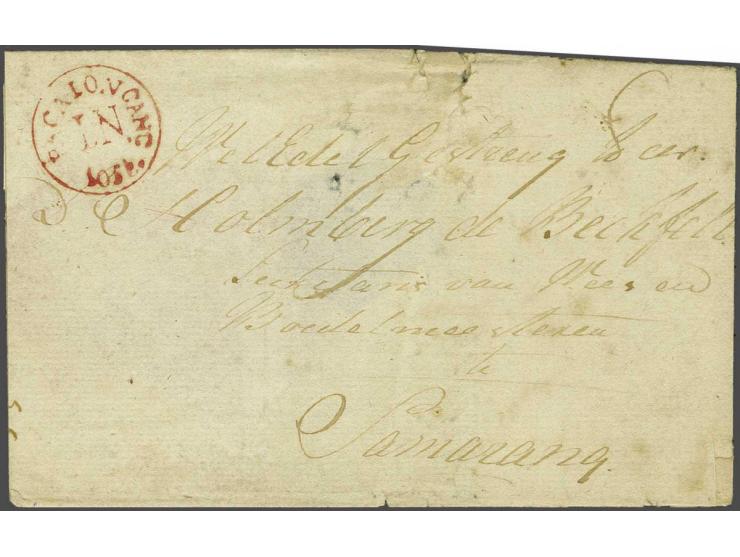 PACALONGANG
I.N.
WelEdel Gestreng Heer.
Holmberg de Beckfelt
Secretaris van Wees en
Boedelmeesteren
te
Samarang.